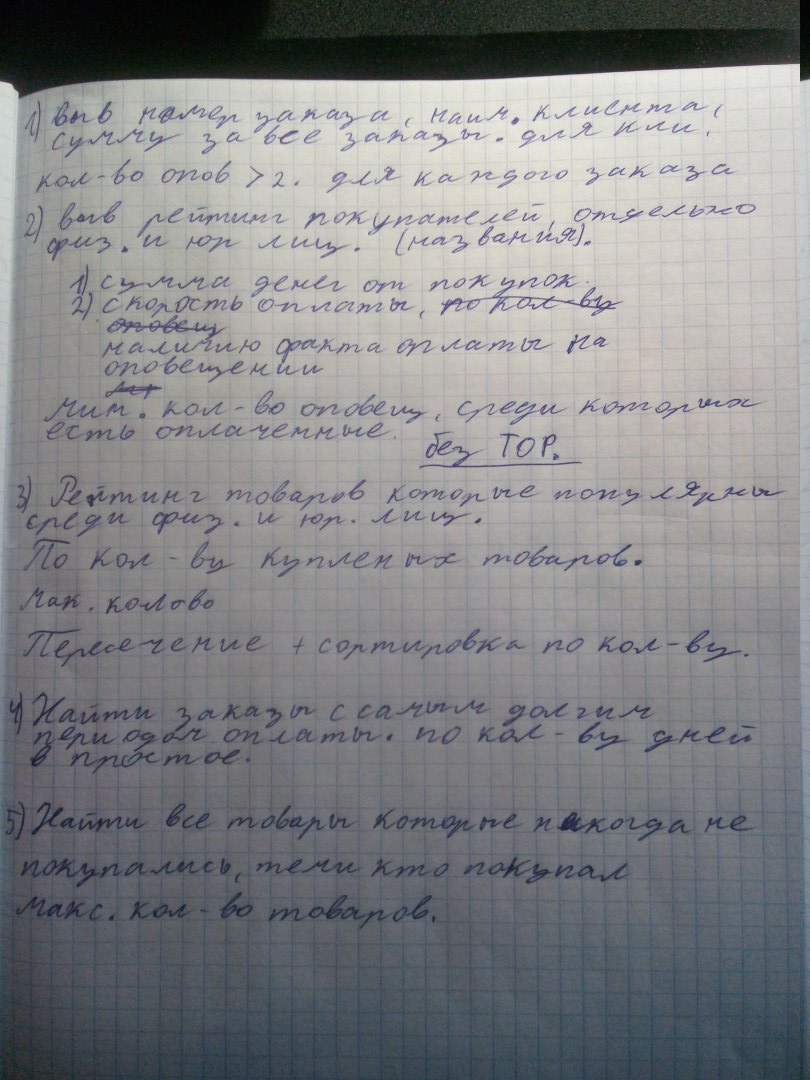 1) Выв номер заказа, наим. клиента,
сумму за все заказы. для кли.
кол-во опов > 2. для каждого заказа
2) выв рейтинг покупателей, отдельно
физ. и юр лиц. (названия).
1) сумма денег от покупок.
2) скорость оплаты, по кол-ву
оповещ
наличию факта оплаты на
оповещении
мин. кол-во оповещ, среди которых
есть оплаченные.
без TOP.
3) Рейтинг товаров которые популярны
среди физ. и юр. лиц.
По кол-ву купленых товаров.
мак. колово
Пересечение + сортировка по кол-ву.
4) Найти заказы с самым долгим
периодом оплаты. по кол-ву дней
в простое.
5) Найти все товары которые никогда не
покупались, теми кто покупал
макс. кол-во товаров.